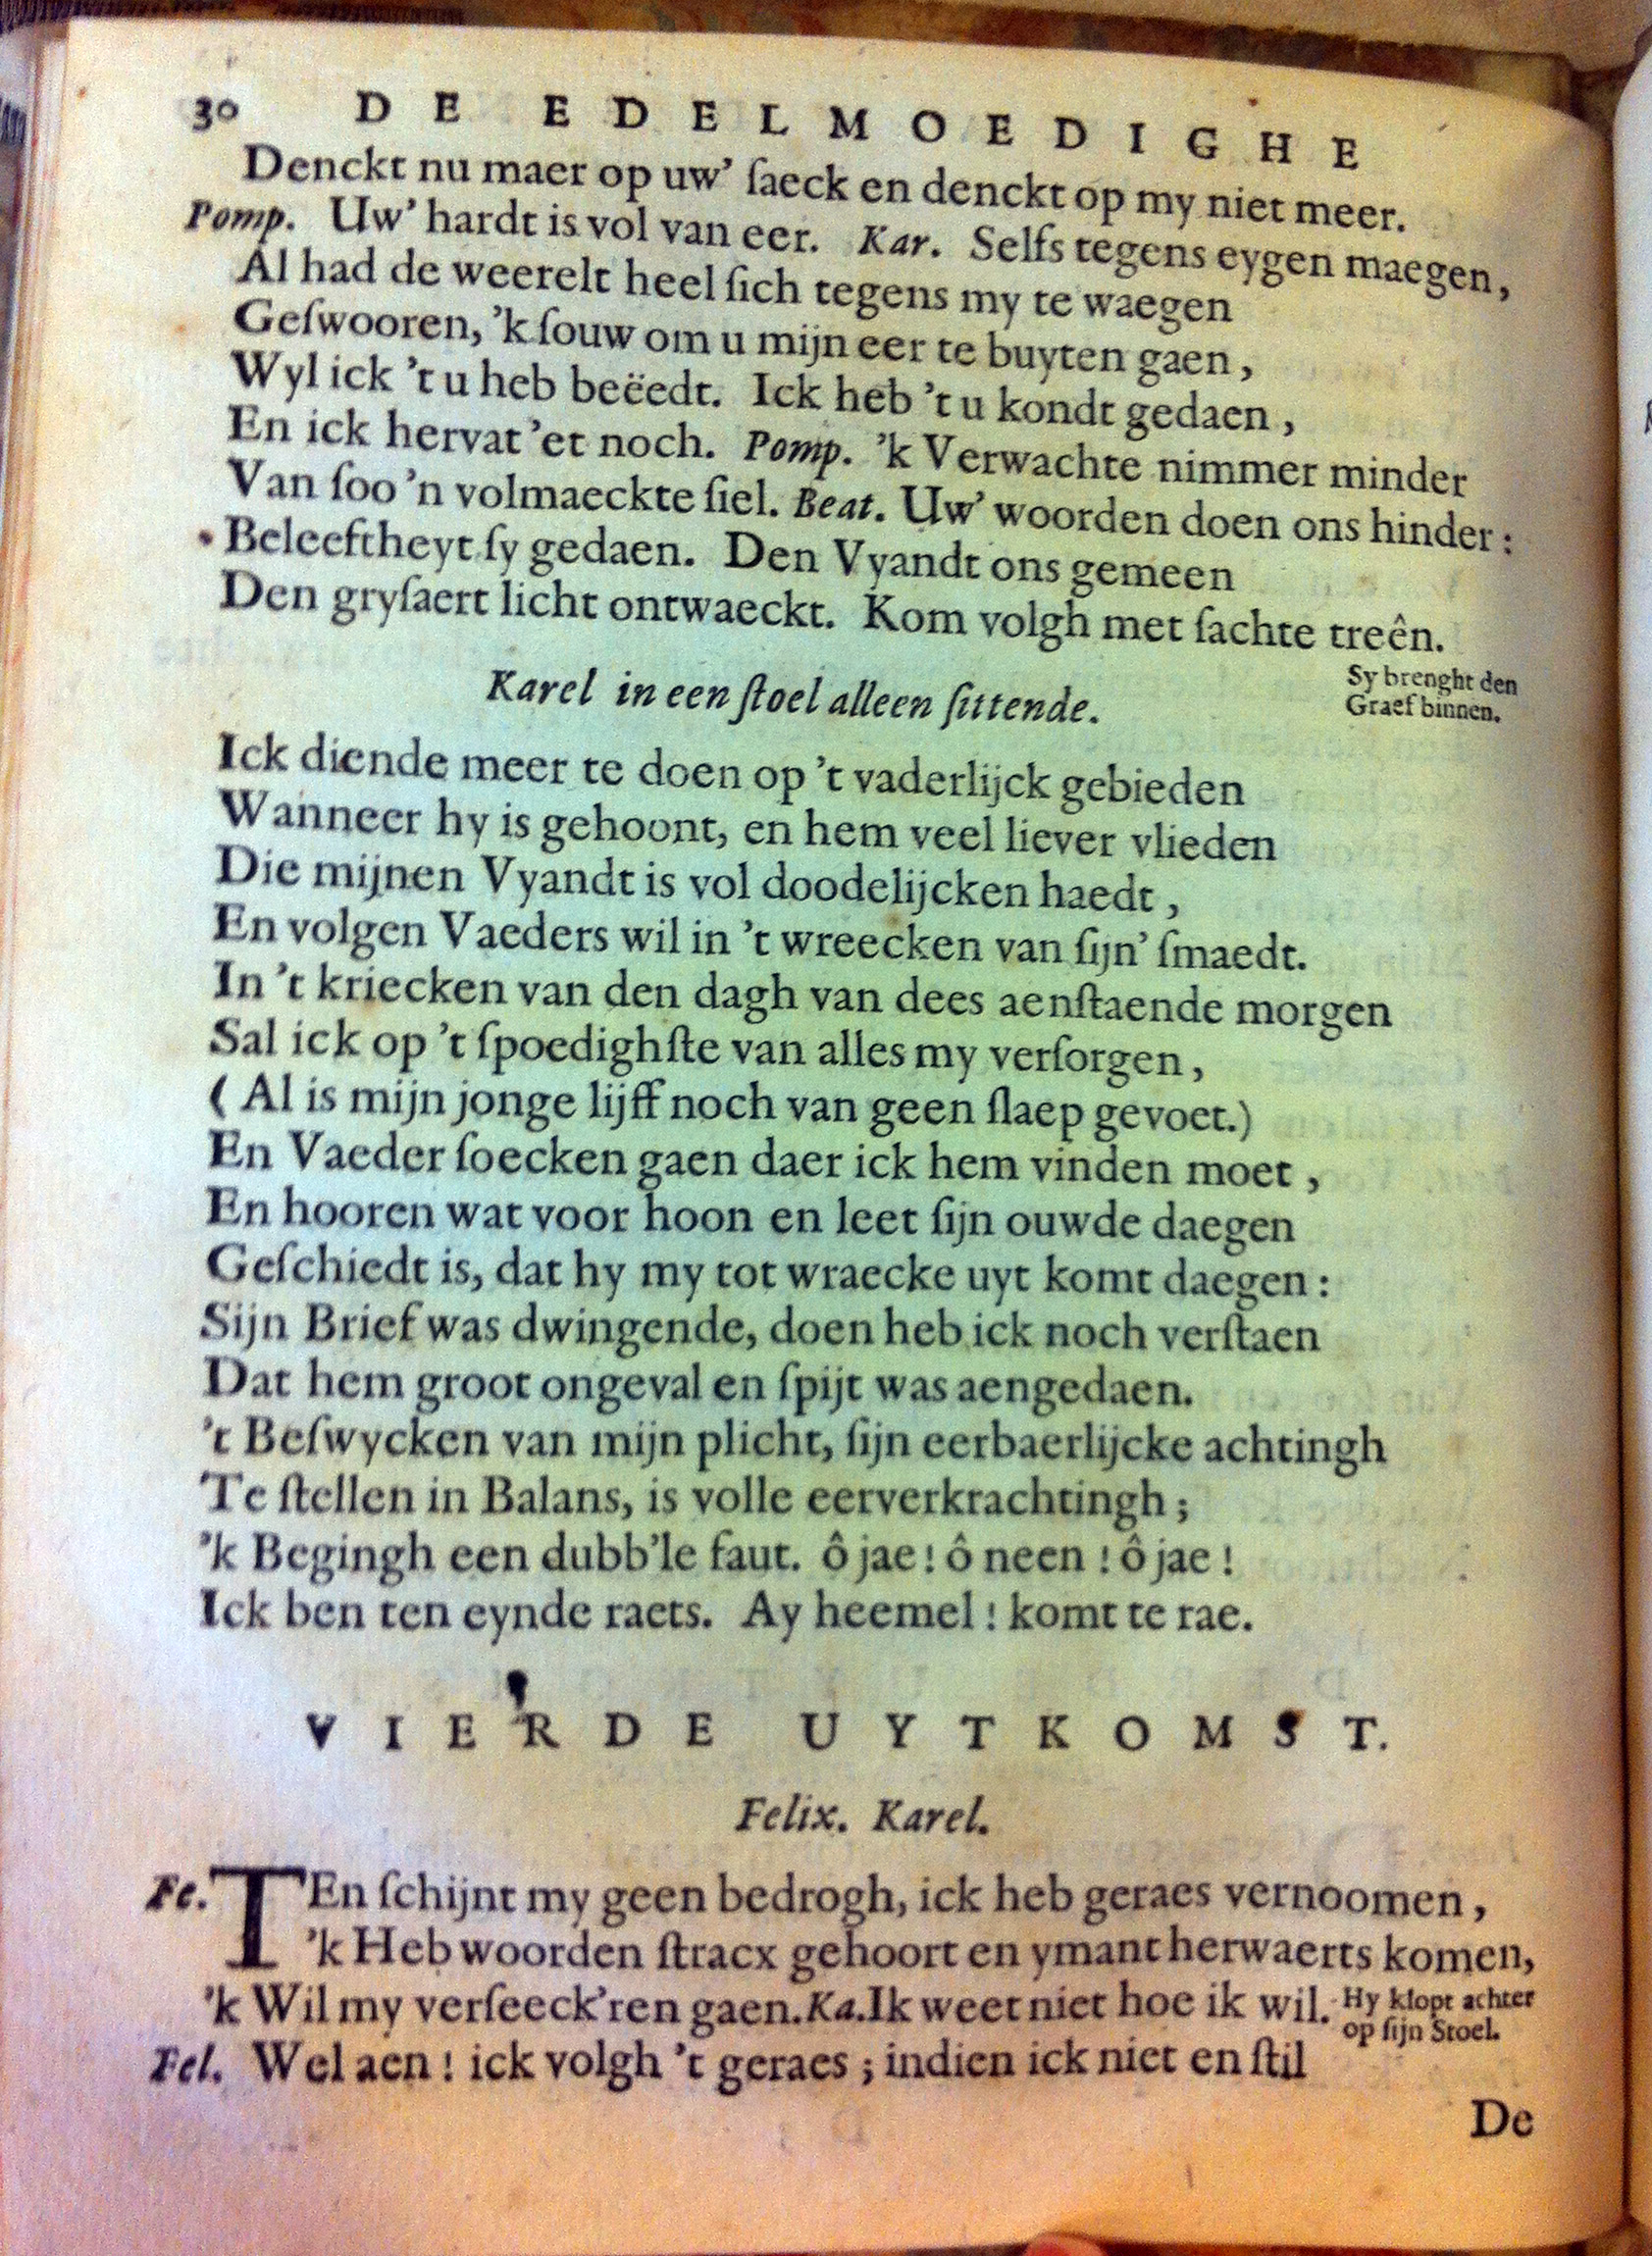 30 DE EDELMOEDIGHE
Denckt nu maer op uw' ſaeck en denckt op my niet meer.
Pomp. Uw' hardt is vol van eer. Kar. Selfs tegens eygen maegen,
Al had de weerelt heel ſich tegens my te waegen
Geſwooren, 'k ſouw om u mijn eer te buyten gaen,
Wyl ick 't u heb beëedt. Ick heb 't u kondt gedaen,
En ick hervat 'et noch. Pomp. 'k Verwachte nimmer minder
Van ſoo 'n volmaeckte ſiel. Beat. Uw' woorden doen ons hinder:
Beleeftheyt ſy gedaen. Den Vyandt ons gemeen
Den gryſaert licht ontwaeckt. Kom volgh met ſachte treên.
Sy brenght den
Graef binnen.
Karel in een ſtoel alleen ſittende.
Ick diende meer te doen op 't vaderlijck gebieden
Wanneer hy is gehoont, en hem veel liever vlieden
Die mijnen Vyandt is vol doodelijcken haedt,
En volgen Vaeders wil in 't wreecken van ſijn' ſmaedt.
In 't kriecken van den dagh van dees aenſtaende morgen
Sal ick op 't ſpoedighſte van alles my verſorgen,
(Al is mijn jonge lijff noch van geen ſlaep gevoet.)
En Vaeder ſoecken gaen daer ick hem vinden moet,
En hooren wat voor hoon en leet ſijn ouwde daegen
Geſchiedt is, dat hy my tot wraecke uyt komt daegen:
Sijn Brief was dwingende, doen heb ick noch verſtaen
Dat hem groot ongeval en ſpijt was aengedaen.
't Beſwycken van mijn plicht, ſijn eerbaerlijcke achtingh
Te ſtellen in Balans, is volle eerverkrachtingh;
'k Begingh een dubb'le faut. ô jae! ô neen! ô jae!
Ick ben ten eynde raets. Ay heemel! komt te rae.
VIERDE UYTKOMST.
Felix. Karel.
Fe. TEn ſchijnt my geen bedrogh, ick heb geraes vernoomen,
'k Heb woorden ſtracx gehoort en ymant herwaerts komen,
'k Wil my verſeeck'ren gaen. Ka. Ik weet niet hoe ik wil.
Hy klopt achter
op ſijn Stoel.
Fel. Wel aen! ick volgh 't geraes; indien ick niet en ſtil
De